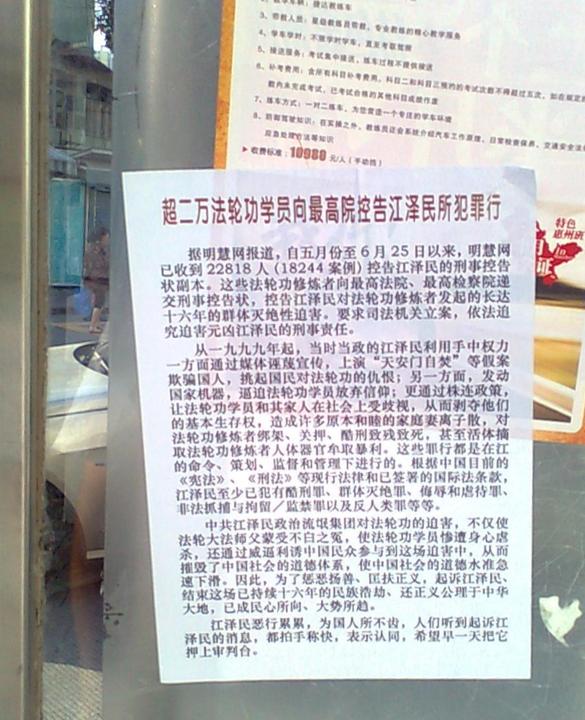 3. 带教人员：星级教练员带教，专业教练的精心教学服务
4. 学车学时：不限学时学车，直至考取驾照
5. 接送服务：考试集中接送，练车过程不提供接送
6. 补考费用：含所有科目补考费用，科目二和科目三预约的考试次数不得超过五次，如在规定
期内未完成考试，已考试合格的其他科目成绩作废
7. 练车方式：一对二练车，为您营造一个专注的学车环境
应急处理方法等知识
收费标准：10980 元/人（手动挡）
特色
惠州班
超二万法轮功学员向最高院控告江泽民所犯罪行
据明慧网报道，自五月份至6月25日以来，明慧网
已收到22818人(18244案例)控告江泽民的刑事控告
状副本。这些法轮功修炼者向最高法院、最高检察院递
交刑事控告状，控告江泽民对法轮功修炼者发起的长达
十六年的群体灭绝性迫害。要求司法机关立案，依法追
究迫害元凶江泽民的刑事责任。
从一九九九年起，当时当政的江泽民利用手中权力
一方面通过媒体诬蔑宣传，上演“天安门自焚”等假案
欺骗国人，挑起国民对法轮功的仇恨；另一方面，发动
国家机器，逼迫法轮功学员放弃信仰；更通过株连政策，
让法轮功学员和其家人在社会上受歧视，从而剥夺他们
的基本生存权，造成许多原本和睦的家庭妻离子散，对
法轮功修炼者绑架、关押、酷刑致残致死，甚至活体摘
取法轮功修炼者人体器官牟取暴利。这些罪行都是在江
的命令、策划、监督和管理下进行的。根据中国目前的
《宪法》、《刑法》等现行法律和已签署的国际法条款，
江泽民至少已犯有酷刑罪、群体灭绝罪、侮辱和虐待罪、
非法抓捕与拘留／监禁罪以及反人类罪等等。
中共江泽民政治流氓集团对法轮功的迫害，不仅使
法轮大法师父蒙受不白之冤，使法轮功学员惨遭身心虐
杀，还通过威逼利诱中国民众参与到这场迫害中，从而
摧毁了中国社会的道德体系，使中国社会的道德水准急
速下滑。因此，为了惩恶扬善、匡扶正义，起诉江泽民、
结束这场已持续十六年的民族浩劫、还正义公理于中华
大地，已成民心所向、大势所趋。
江泽民恶行累累，为国人所不齿，人们听到起诉江
泽民的消息，都拍手称快，表示认同，希望早一天把它
押上审判台。